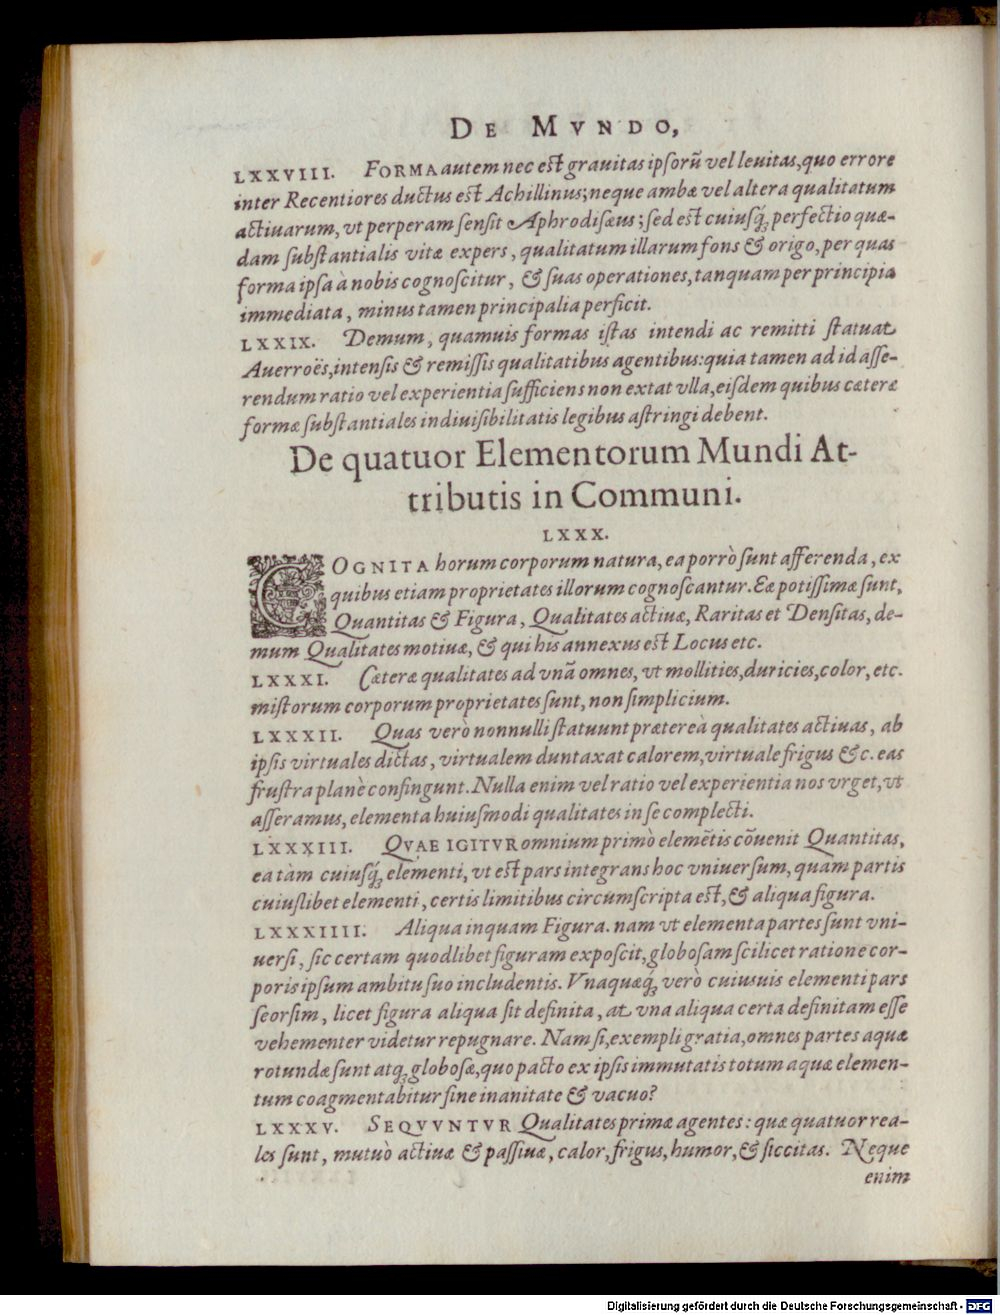 DE MVNDO,
LXXVIII. FORMA autem nec est grauitas ipsorũ vel leuitas, quo errore
inter Recentiores ductus est Achillinus; neque ambæ vel altera qualitatum
actiuarum, vt perperam sensit Aphrodisæus; sed est cuiusq́; perfectio quæ-
dam substantialis vitæ expers, qualitatum illarum fons & origo, per quas
forma ipsa à nobis cognoscitur, & suas operationes, tanquam per principia
immediata, minus tamen principalia perficit.
LXXIX. Demum, quamuis formas istas intendi ac remitti statuat
Auerroës, intensis & remissis qualitatibus agentibus: quia tamen ad id asse-
rendum ratio vel experientia sufficiens non extat vlla, eisdem quibus cæteræ
formæ substantiales indiuisibilitatis legibus astringi debent.
De quatuor Elementorum Mundi At-
tributis in Communi.
LXXX.
COGNITA horum corporum natura, ea porrò sunt afferenda, ex
quibus etiam proprietates illorum cognoscantur. Eæ potissimæ sunt,
Quantitas & Figura, Qualitates actiuæ, Raritas et Densitas, de-
mum Qualitates motiuæ, & qui his annexus est Locus etc.
LXXXI. Cæteræ qualitates ad vnã omnes, vt mollities, duricies, color, etc.
mistorum corporum proprietates sunt, non simplicium.
LXXXII. Quas verò nonnulli statuunt prætereà qualitates actiuas, ab
ipsis virtuales dictas, virtualem duntaxat calorem, virtuale frigus &c. eas
frustra planè confingunt. Nulla enim vel ratio vel experientia nos vrget, vt
asseramus, elementa huiusmodi qualitates in se complecti.
LXXXIII. QVAE IGITVR omnium primò elemẽtis cõuenit Quantitas,
ea tàm cuiusq́; elementi, vt est pars integrans hoc vniuersum, quam partis
cuiuslibet elementi, certis limitibus circumscripta est, & aliqua figura.
LXXXIIII. Aliqua inquam Figura. nam vt elementa partes sunt vni-
uersi, sic certam quodlibet figuram exposcit, globosam scilicet ratione cor-
poris ipsum ambitu suo includentis. Vnaquæq́; verò cuiusuis elementi pars
seorsim, licet figura aliqua sit definita, at vna aliqua certa definitam esse
vehementer videtur repugnare. Nam si, exempli gratia, omnes partes aquæ
rotundæ sunt atq; globosæ, quo pacto ex ipsis immutatis totum aquæ elemen-
tum coagmentabitur sine inanitate & vacuo?
LXXXV. SEQVVNTVR Qualitates primæ agentes: quæ quatuor rea-
les sunt, mutuò actiuæ & passiuæ, calor, frigus, humor, & siccitas. Neque
enim
Digitalisierung gefördert durch die Deutsche Forschungsgemeinschaft - DFG